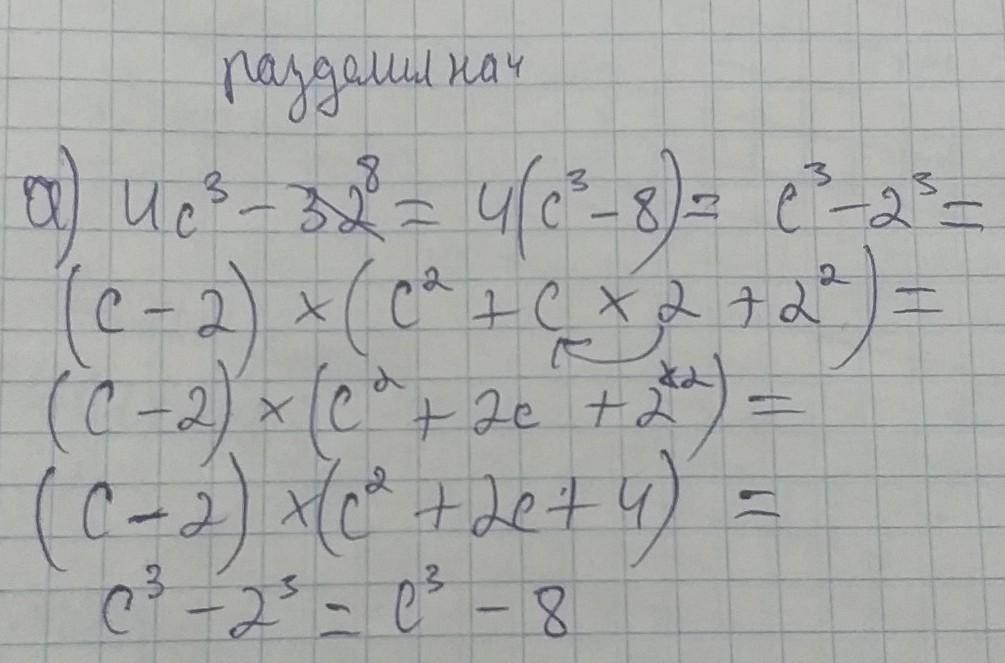 разделил на 4
а) 4c³ - 32⁸ = 4(c³ - 8) = c³ - 2³ =
(c - 2) × (c² + c × 2 + 2²) =
(c - 2) × (c² + 2c + 2ˣ²) =
(c - 2) × (c² + 2c + 4) =
c³ - 2³ = c³ - 8